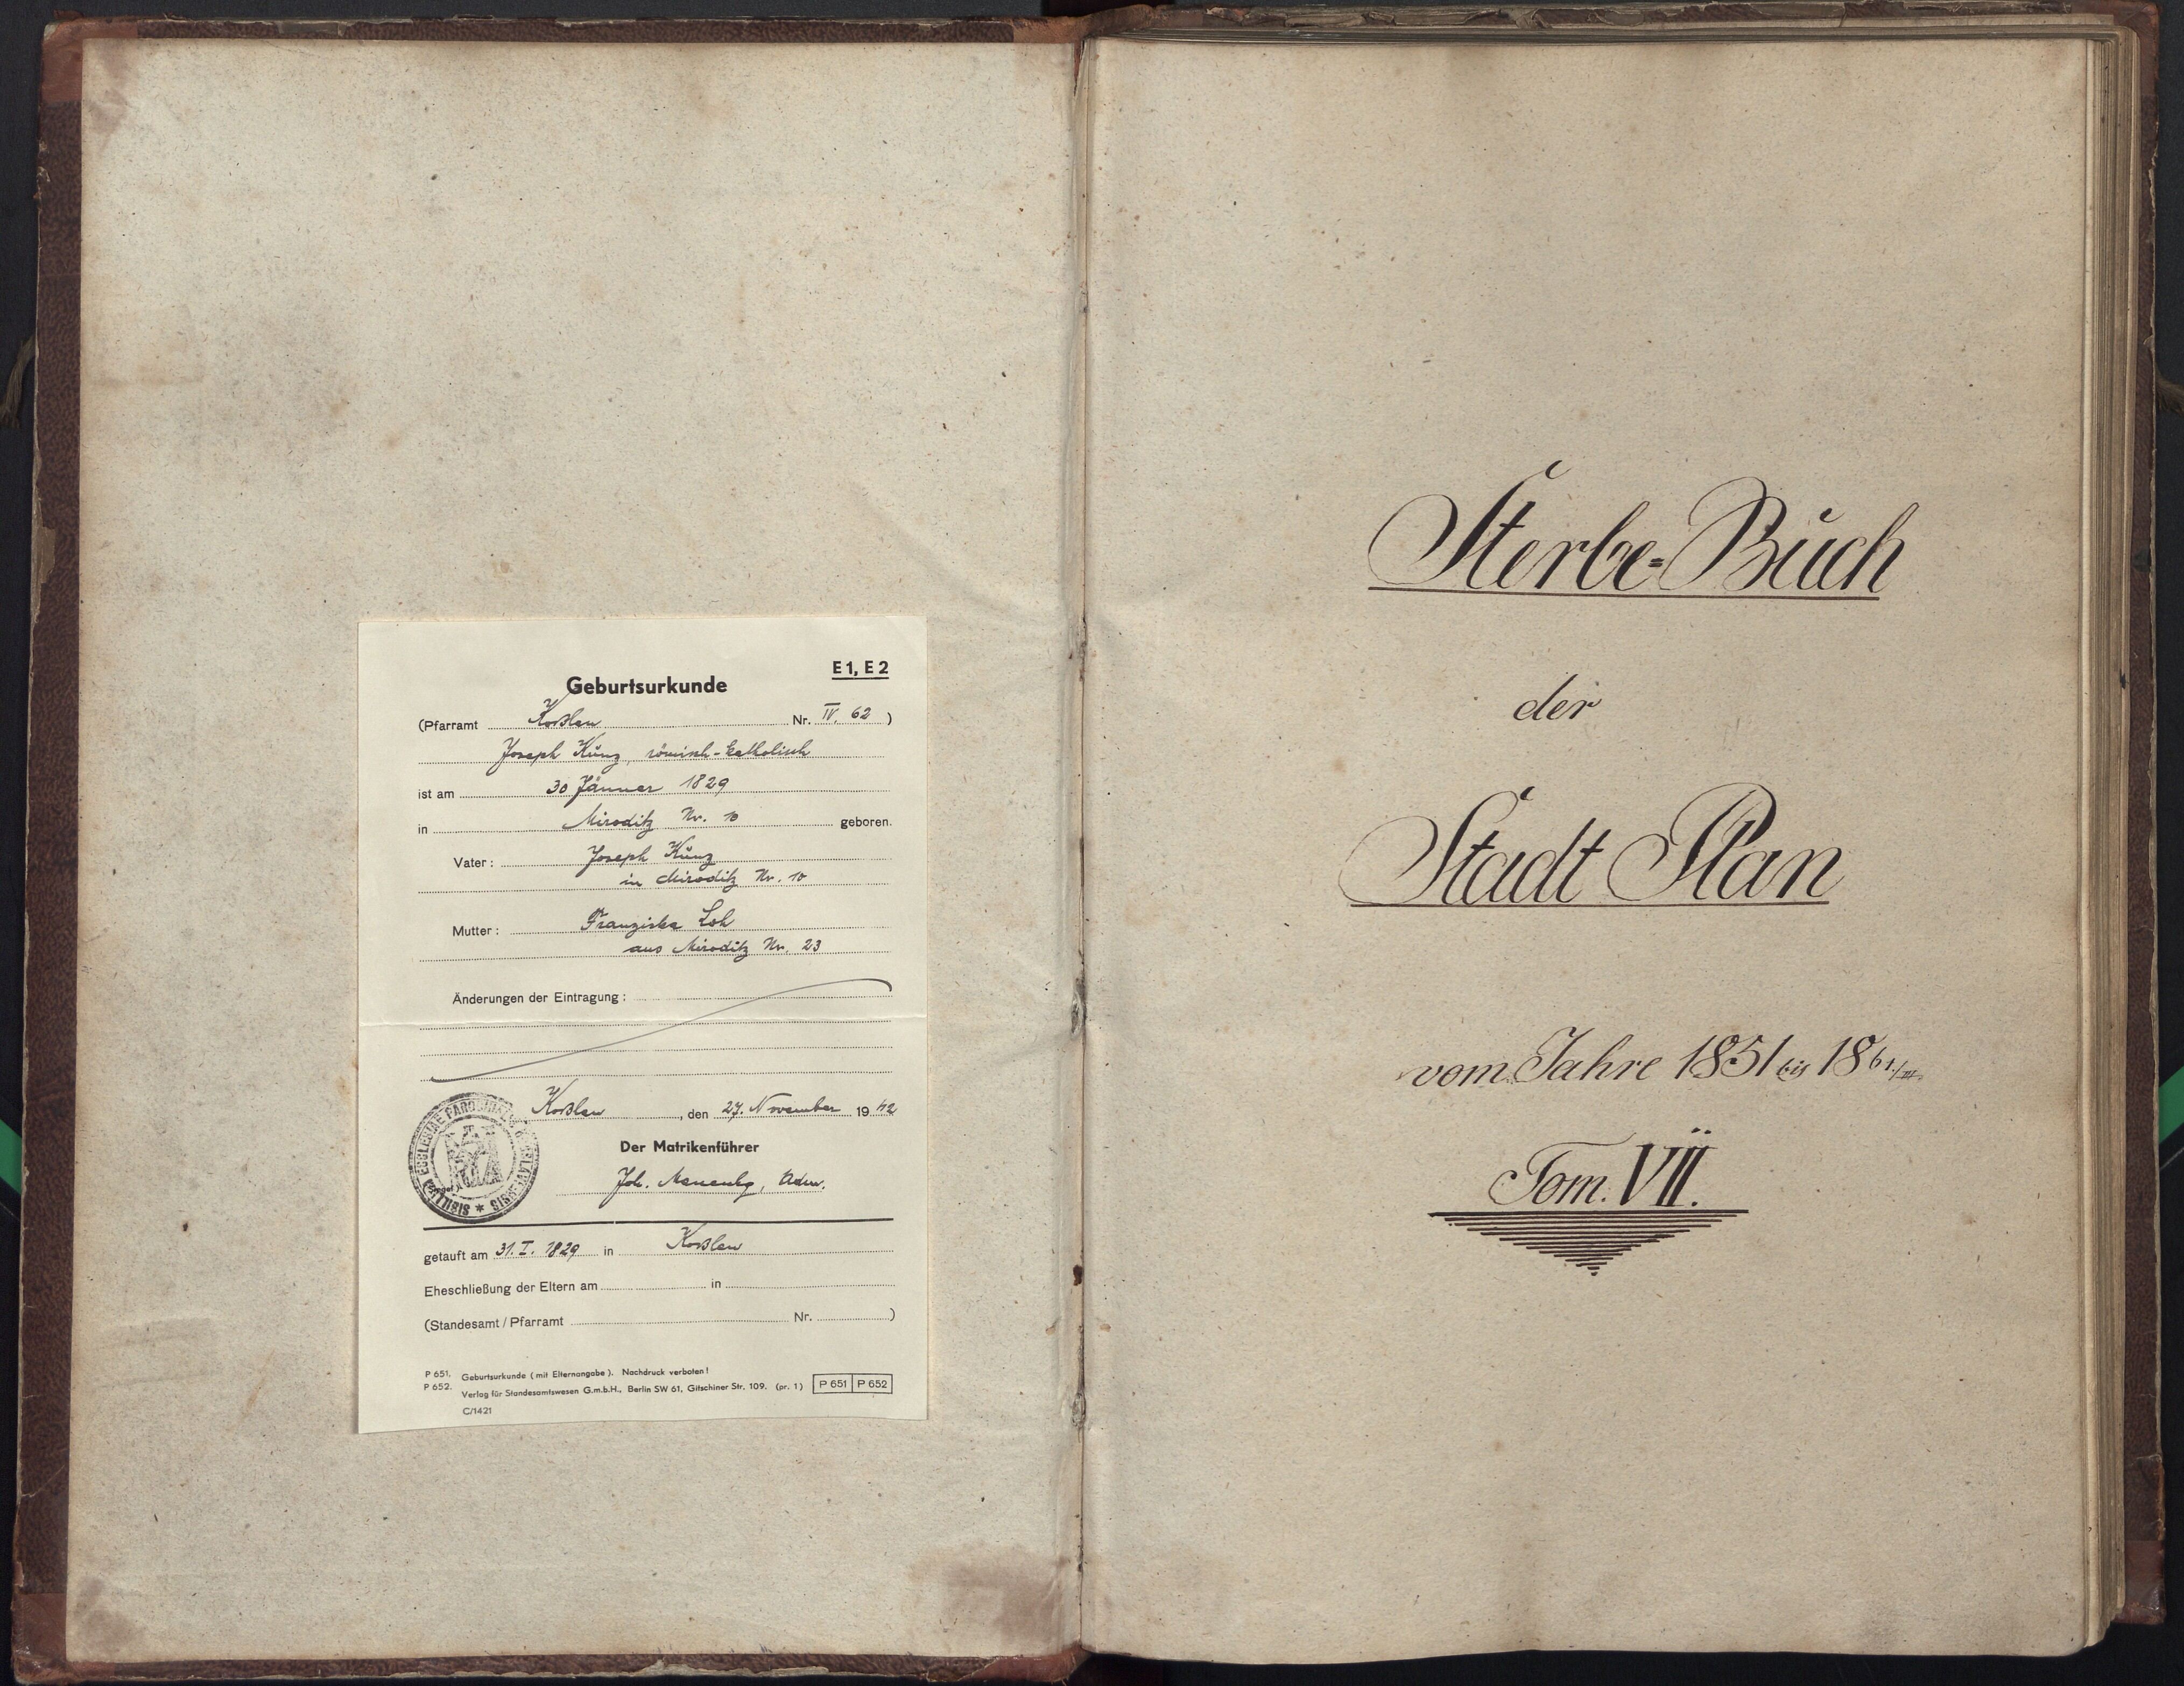 E 1, E 2
Geburtsurkunde
(Pfarramt Koßlau Nr. IV. 62 )
Joseph Kunz, römisch-katholisch
ist am 30 Jänner 1829
in Miroditz Nr. 10 geboren.
Vater: Joseph Kunz
in Miroditz Nr. 10
Mutter: Franziska Loh
aus Miroditz Nr. 23
Änderungen der Eintragung:
Koßlau, den 27. November 1942
Der Matrikenführer
Joh. Adm.
SIGILLUM ECCLESIAE
getauft am 31. I. 1829 in Koßlau
Eheschließung der Eltern am in
(Standesamt / Pfarramt Nr. )
P 651. Geburtsurkunde (mit Elternangabe). Nachdruck verboten!
P 652. Verlag für Standesamtswesen G.m.b.H., Berlin SW 61, Gitschiner Str. 109. (pr. 1) P 651 P 652
C/1421
Sterbe-Buch
der
Stadt Plan
vom Jahre 1851 bis 1861./III.
Tom. VII.